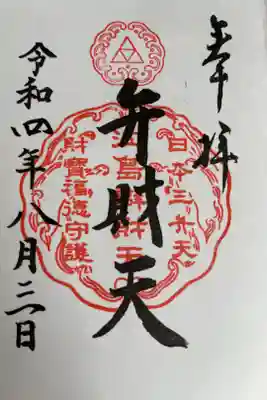 奉拝
日本三弁天
弁財天
江島辨財天
財寶福徳守護
令和四年八月三日